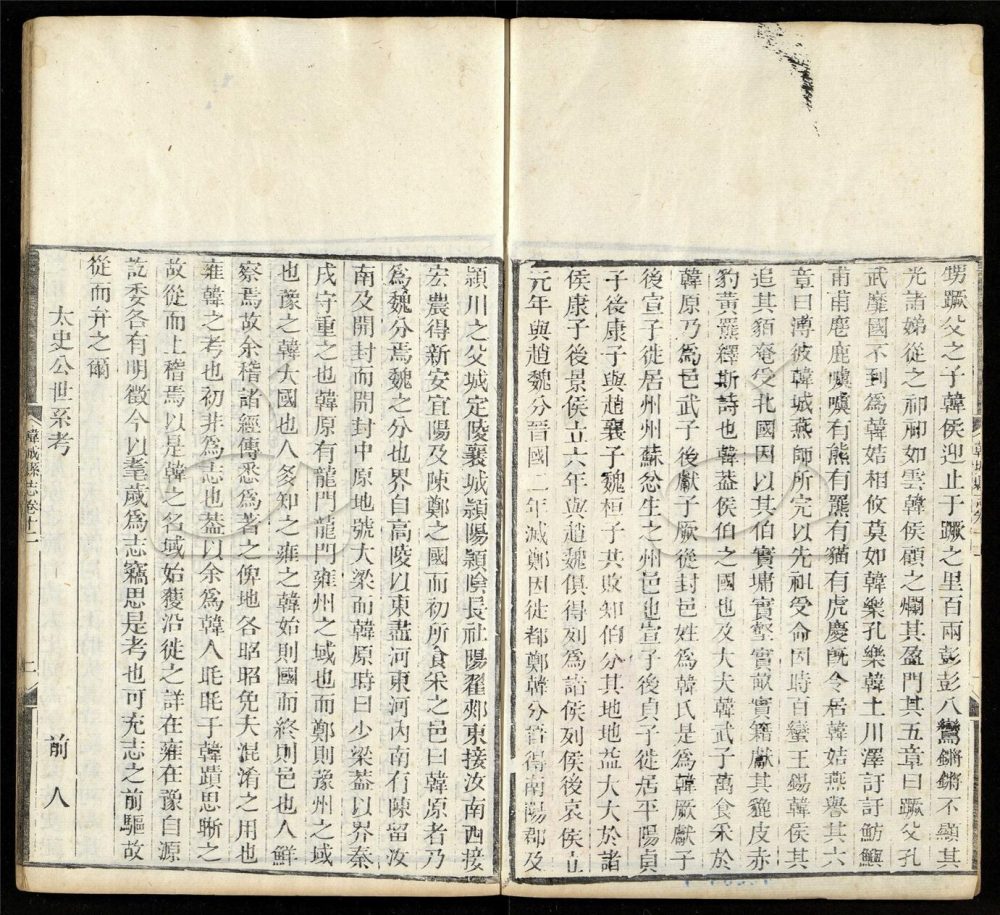 甥蹶父之子韓侯迎止于蹶之里百兩彭彭八鸞鏘鏘不顯其
光諸娣從之祁祁如雲韓侯顧之爛其盈門其五章曰蹶父孔
武靡國不到為韓姞相攸莫如韓樂孔樂韓土川澤訏訏魴鱮
甫甫麀鹿噳噳有熊有羆有貓有虎慶旣令居韓姞燕譽其六
章曰溥彼韓城燕師所完以先祖受命因時百蠻王錫韓侯其
追其貊奄受北國因以其伯實墉實壑實畝實籍獻其貔皮赤
豹黃羆繹斯詩也韓蓋侯伯之國也及大夫韓武子萬食采於
韓原乃為邑武子後獻子厥從封邑姓為韓氏是為韓厥獻子
後宣子徙居州州蘇忿生之州邑也宣子後貞子徙居平陽貞
子後康子與趙襄子魏桓子共敗知伯分其地地益大大於諸
侯康子後景侯立六年與趙魏俱得列為諸侯列侯後哀侯立
元年與趙魏分晉國二年滅鄭因徙都鄭韓分晉得南陽郡及
潁川之父城定陵襄城潁陽潁陰長社陽翟郟東接汝南西接
宏農得新安宜陽及陳鄭之國而初所食采之邑曰韓原者乃
為魏分焉魏之分也界自高陵以東盡河東河內南有陳留汝
南及開封而開封中原地號大梁而韓原時曰少梁蓋以界秦
戌守重之也韓原有龍門龍門雍州之域也而鄭則豫州之域
也豫之韓大國也人多知之雍之韓始則國而終則邑也人鮮
察焉故余稽諸經傳悉為著之俾地各昭昭免夫混淆之用也
雍韓之考也初非為志也蓋以余為韓人毦毦于韓蹟思晰之
故從而上稽焉以是韓之名域始獲沿徙之詳在雍在豫自源
訖委各有明徵今以耄歲為志竊思是考也可充志之前驅故
從而弁之爾
太史公世系考 前人
韓城縣志卷十二 二